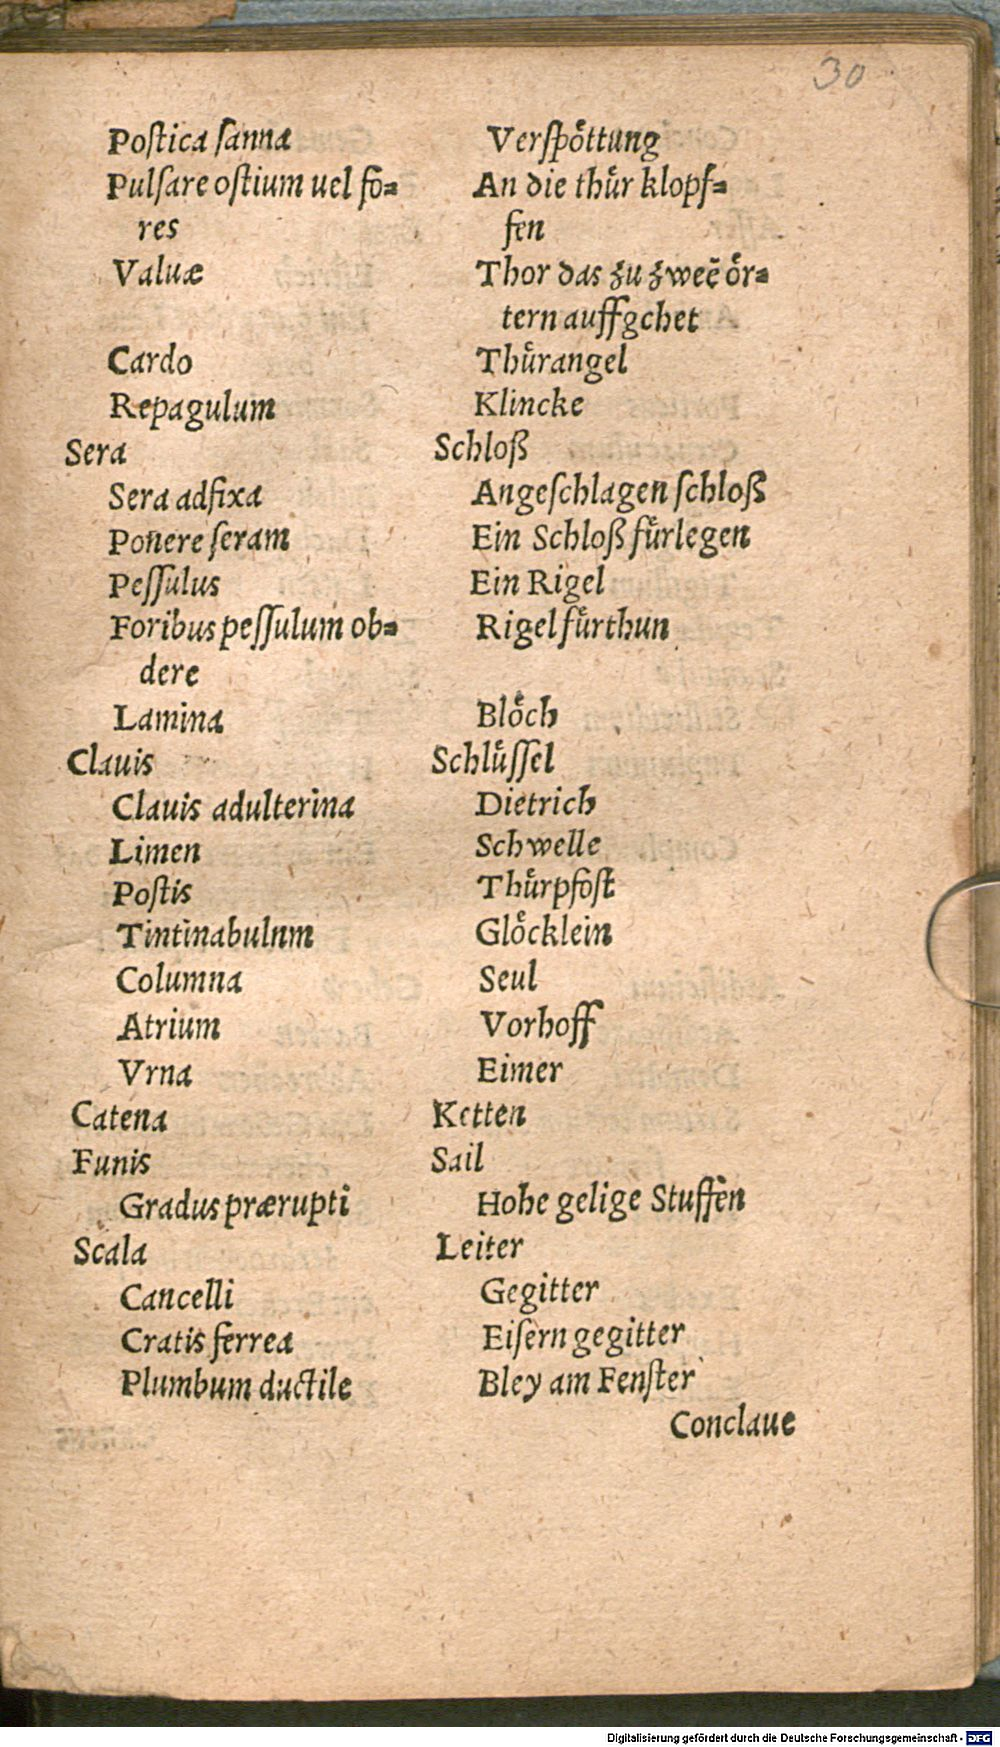 30
Poſtica ſanna Verſpoͤttung
Pulſare oſtium uel fo= An die thuͤr klopf=
res fen
Valuæ Thor das zu zweẽ oͤr=
tern auffgehet
Cardo Thuͤrangel
Repagulum Klincke
Sera Schloß
Sera adfixa Angeſchlagen ſchloß
Ponere ſeram Ein Schloß fuͤrlegen
Peſſulus Ein Rigel
Foribus peſſulum ob= Rigel fuͤrthun
dere
Lamina Bloͤch
Clauis Schluͤſſel
Clauis adulterina Dietrich
Limen Schwelle
Poſtis Thuͤrpfoſt
Tintinabulnm Gloͤcklein
Columna Seul
Atrium Vorhoff
Vrna Eimer
Catena Ketten
Funis Sail
Gradus prærupti Hohe gelige Stuffen
Scala Leiter
Cancelli Gegitter
Cratis ferrea Eiſern gegitter
Plumbum ductile Bley am Fenſter
Conclaue
Digitalisierung gefördert durch die Deutsche Forschungsgemeinschaft - DFG